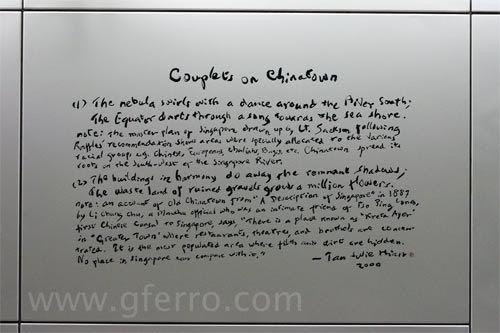 Couplets on Chinatown
(1) The nebula swirls with a dance around the River South;
The Equator darts through a song towards the sea shore.
note: the master plan of Singapore drawn up by Lt. Jackson following
Raffles' recommendation shows areas were specially allocated to the various
racial groups e.g. Chinese, Europeans, Chuliahs, Bugis, etc. Chinatown spread its
roots in the Southwest of the Singapore River.
(2) The buildings in harmony do away the remnant shadows;
The waste land of ruined gravels grows a million flowers.
note: an account of old Chinatown from "A Description of Singapore" in 1887
by Li Chung Chu, a Manchu official who was an intimate friend of Tso Ping Lung,
first Chinese Consul to Singapore, says, "There is a place known as 'Kreta Ayer'
in "Greater Town" where restaurants, theatres, and brothels are concen-
trated. It is the most populated area where filth and dirt are hidden.
No place in Singapore can compare with it."
— Tan Swie Hian
2000
www.gferro.com